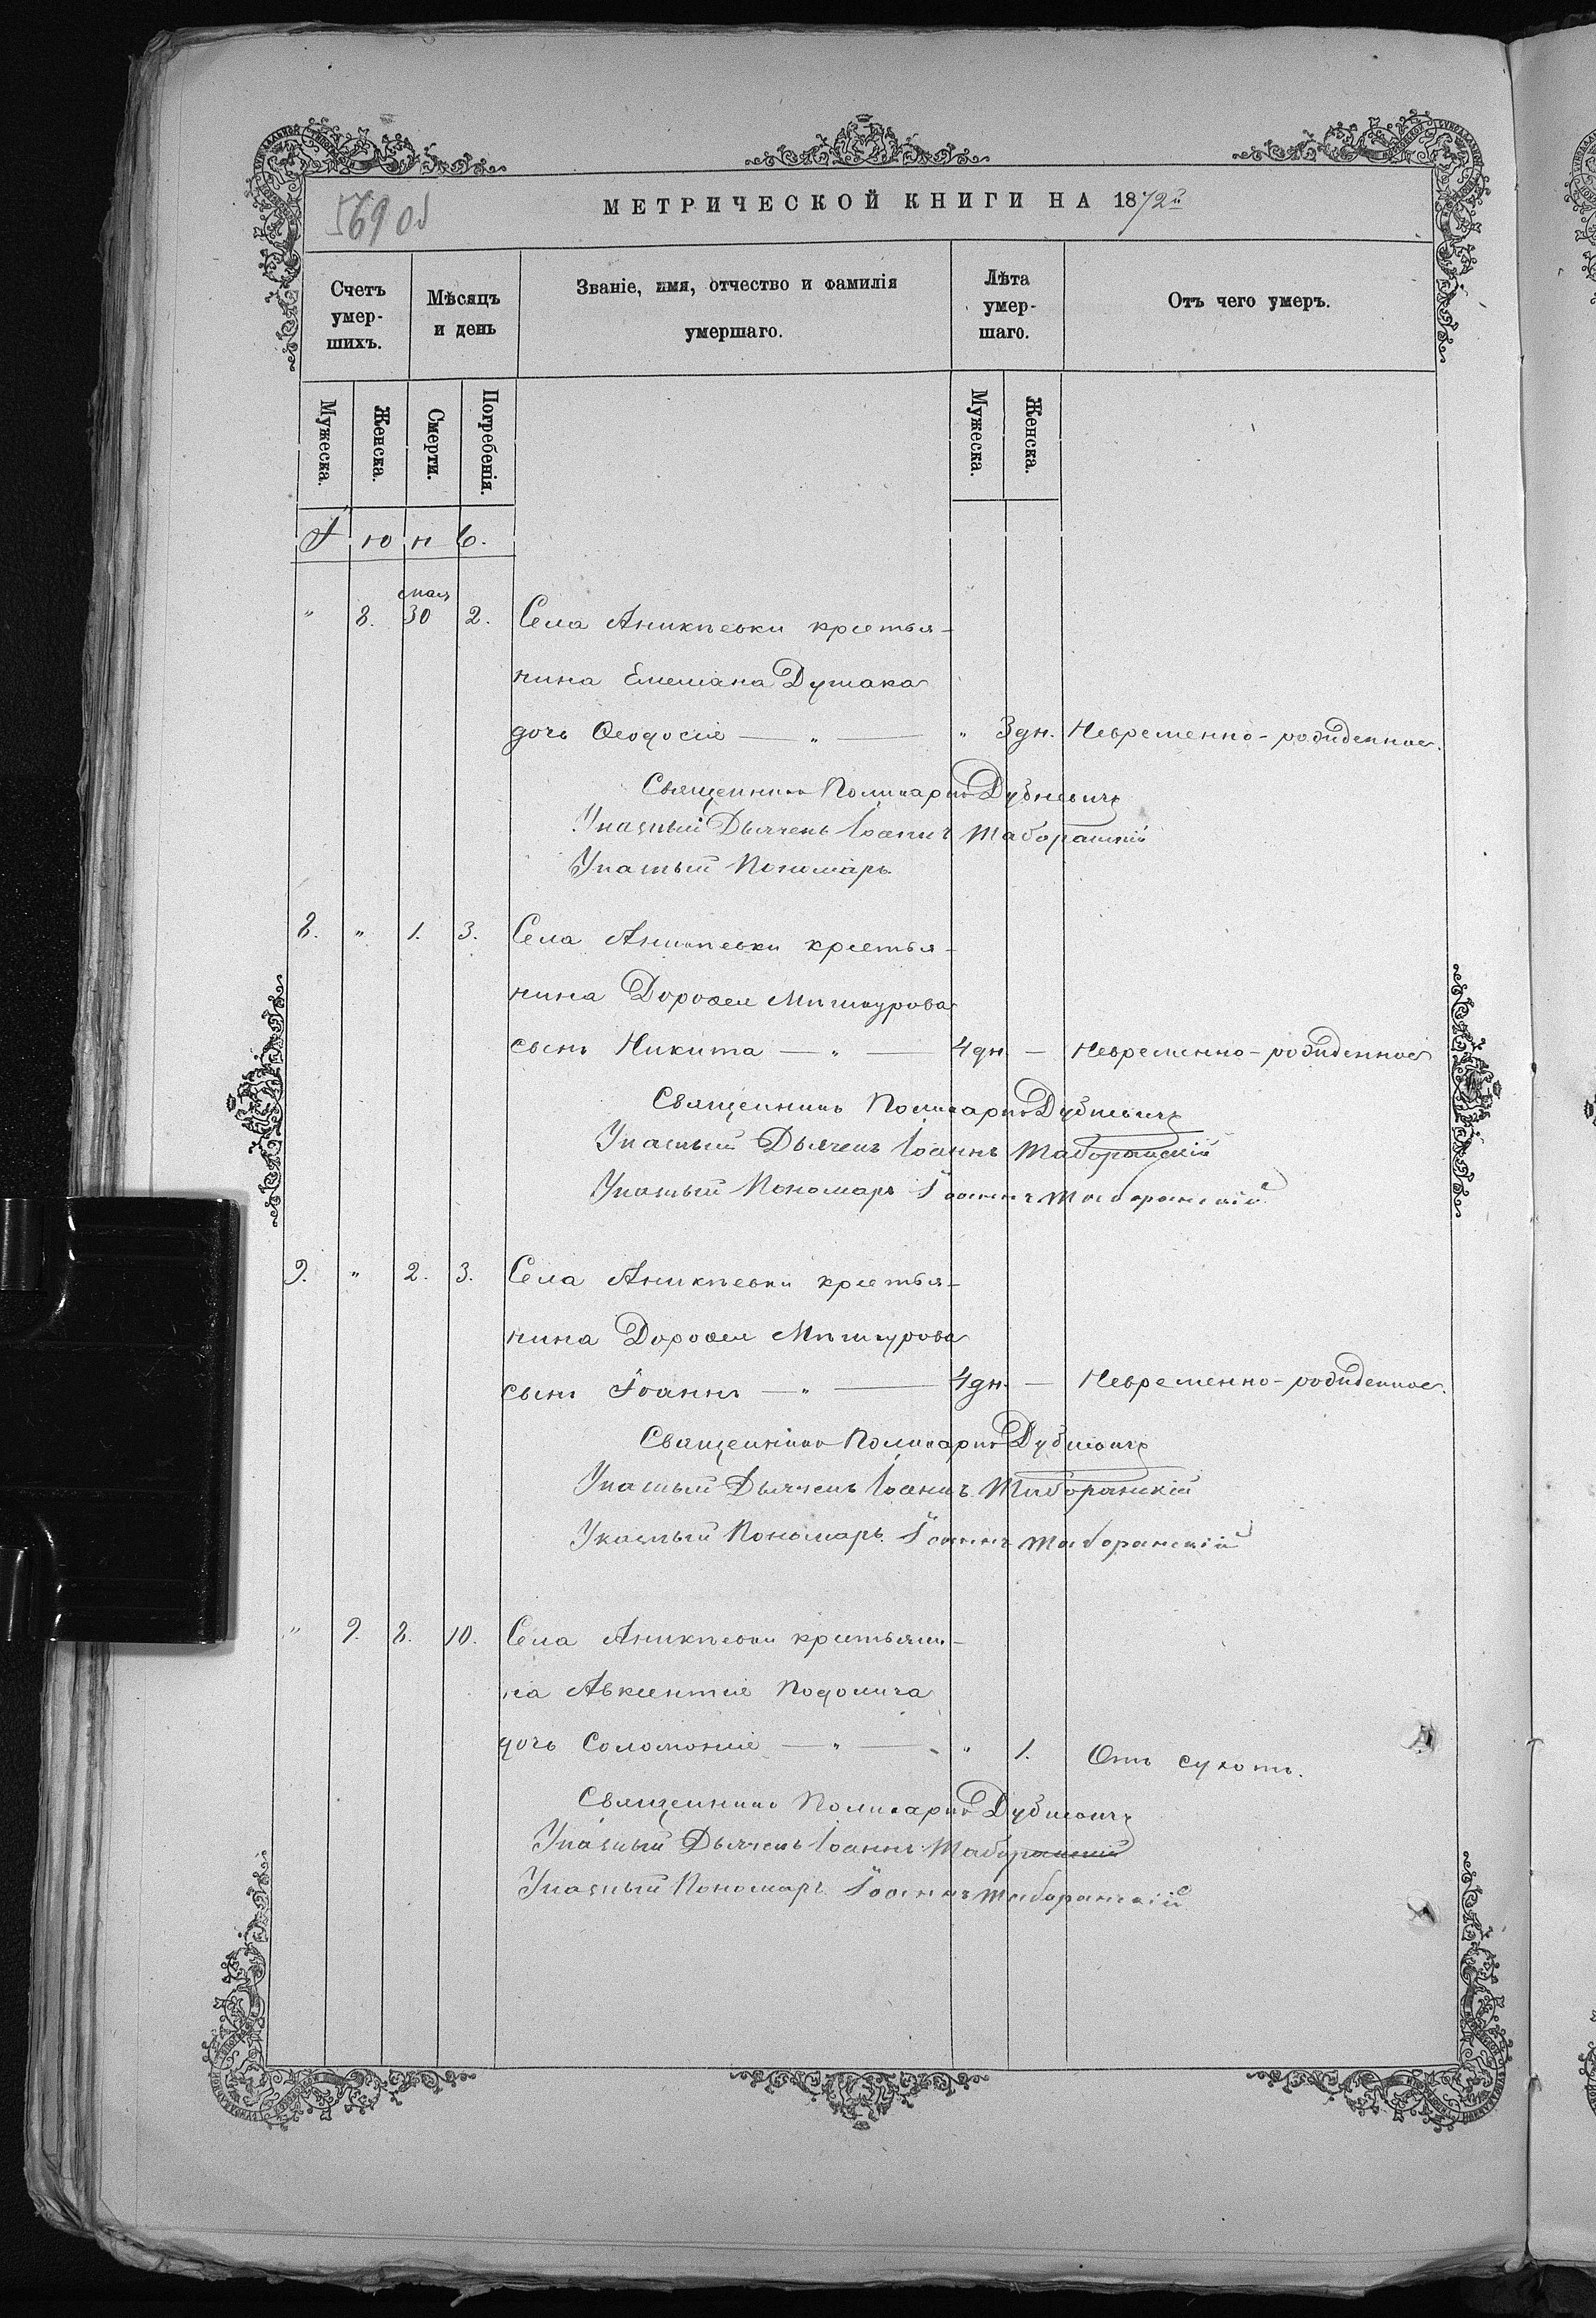 569 об
МЕТРИЧЕСКОЙ КНИГИ НА 1872й
Счетъ умер-шихъ.
Мѣсяцъ и день
Званіе, имя, отчество и фамилія умершаго.
Лѣта умер-шаго.
Отъ чего умеръ.
Мужеска.
Женска.
Смерти.
Погребенія.
Мужеска.
Женска.
Іюнь.
мая
" 8. 30 2. Села Аникѣевки крестья-
нина Емеліана Душака
дочь Ѳеодосія — " — " 3 дн. Невременно-рожденная.
Священникъ Поликарпъ Дубневичъ
Указный Дьячекъ Іоаннъ Таборанскій
Указный Пономарь
8. " 1. 3. Села Аникѣевки крестья-
нина Дороѳея Мишурова
сынъ Никита — " — 4 дн. — Невременно-рожденное
Священникъ Поликарпъ Дубневичъ
Указный Дьячекъ Іоаннъ Таборанскій
Указный Пономарь Іоаннъ Таборанскій
9. " 2. 3. Села Аникѣевки крестья-
нина Дороѳея Мишурова
сынъ Іоаннъ — " — 4 дн. — Невременно-рожденное.
Священникъ Поликарпъ Дубневичъ
Указный Дьячекъ Іоаннъ Таборанскій
Указный Пономарь Іоаннъ Таборанскій
" 9. 8. 10. Села Аникѣевки крестьяни-
на Авксентія
дочь Соломонія — " — " 1. Отъ сухотъ.
Священникъ Поликарпъ Дубневичъ
Указный Дьячекъ Іоаннъ Таборанскій
Указный Пономарь Іоаннъ Таборанскій